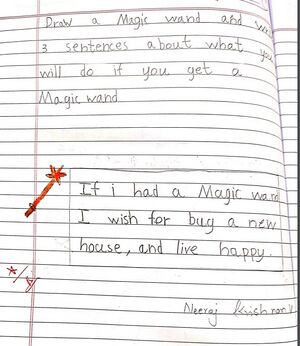 Draw a Magic wand and
3 sentences about what you
will do if you get a
Magic wand
If i had a Magic wand
I wish for buy a new
house, and live happy.
Neeraj Krishnan